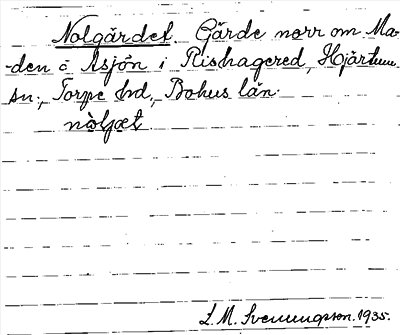 Nolgärdet. Gärde norr om Ma-
-den o Åsjön i Rishagered, Hjärtum
sn., Torpe hd., Bohus län.
L. M. Svenungsson. 1935.